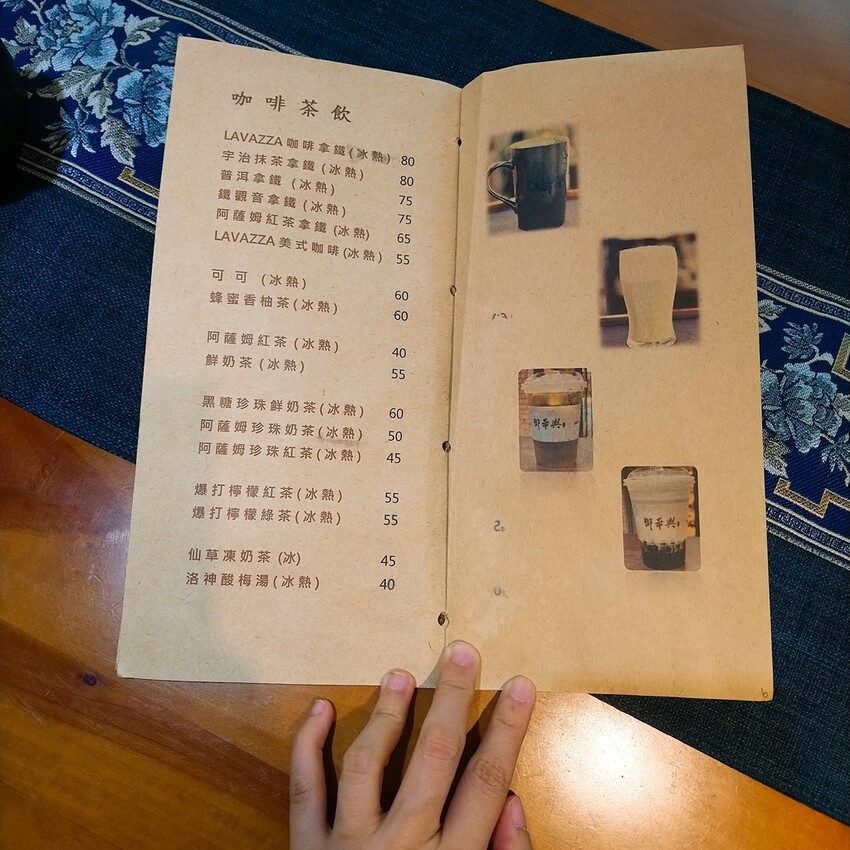 咖啡茶飲
LAVAZZA咖啡拿鐵(冰熱) 80
宇治抹茶拿鐵(冰熱) 80
普洱拿鐵 (冰熱) 75
鐵觀音拿鐵(冰熱) 75
阿薩姆紅茶拿鐵(冰熱) 65
LAVAZZA美式咖啡(冰熱) 55
可可 (冰熱) 60
蜂蜜香柚茶(冰熱) 60
阿薩姆紅茶(冰熱) 40
鮮奶茶(冰熱) 55
黑糖珍珠鮮奶茶(冰熱) 60
阿薩姆珍珠奶茶(冰熱) 50
阿薩姆珍珠紅茶(冰熱) 45
爆打檸檬紅茶(冰熱) 55
爆打檸檬綠茶(冰熱) 55
仙草凍奶茶 (冰) 45
洛神酸梅湯(冰熱) 40